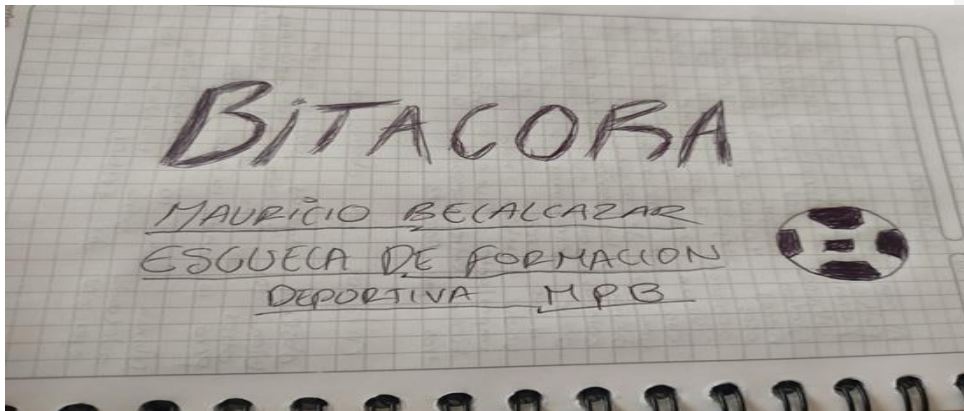 BiTACORA
MAURICIO BELALCAZAR
ESCUELA DE FORMACION
DEPORTIVA MPB